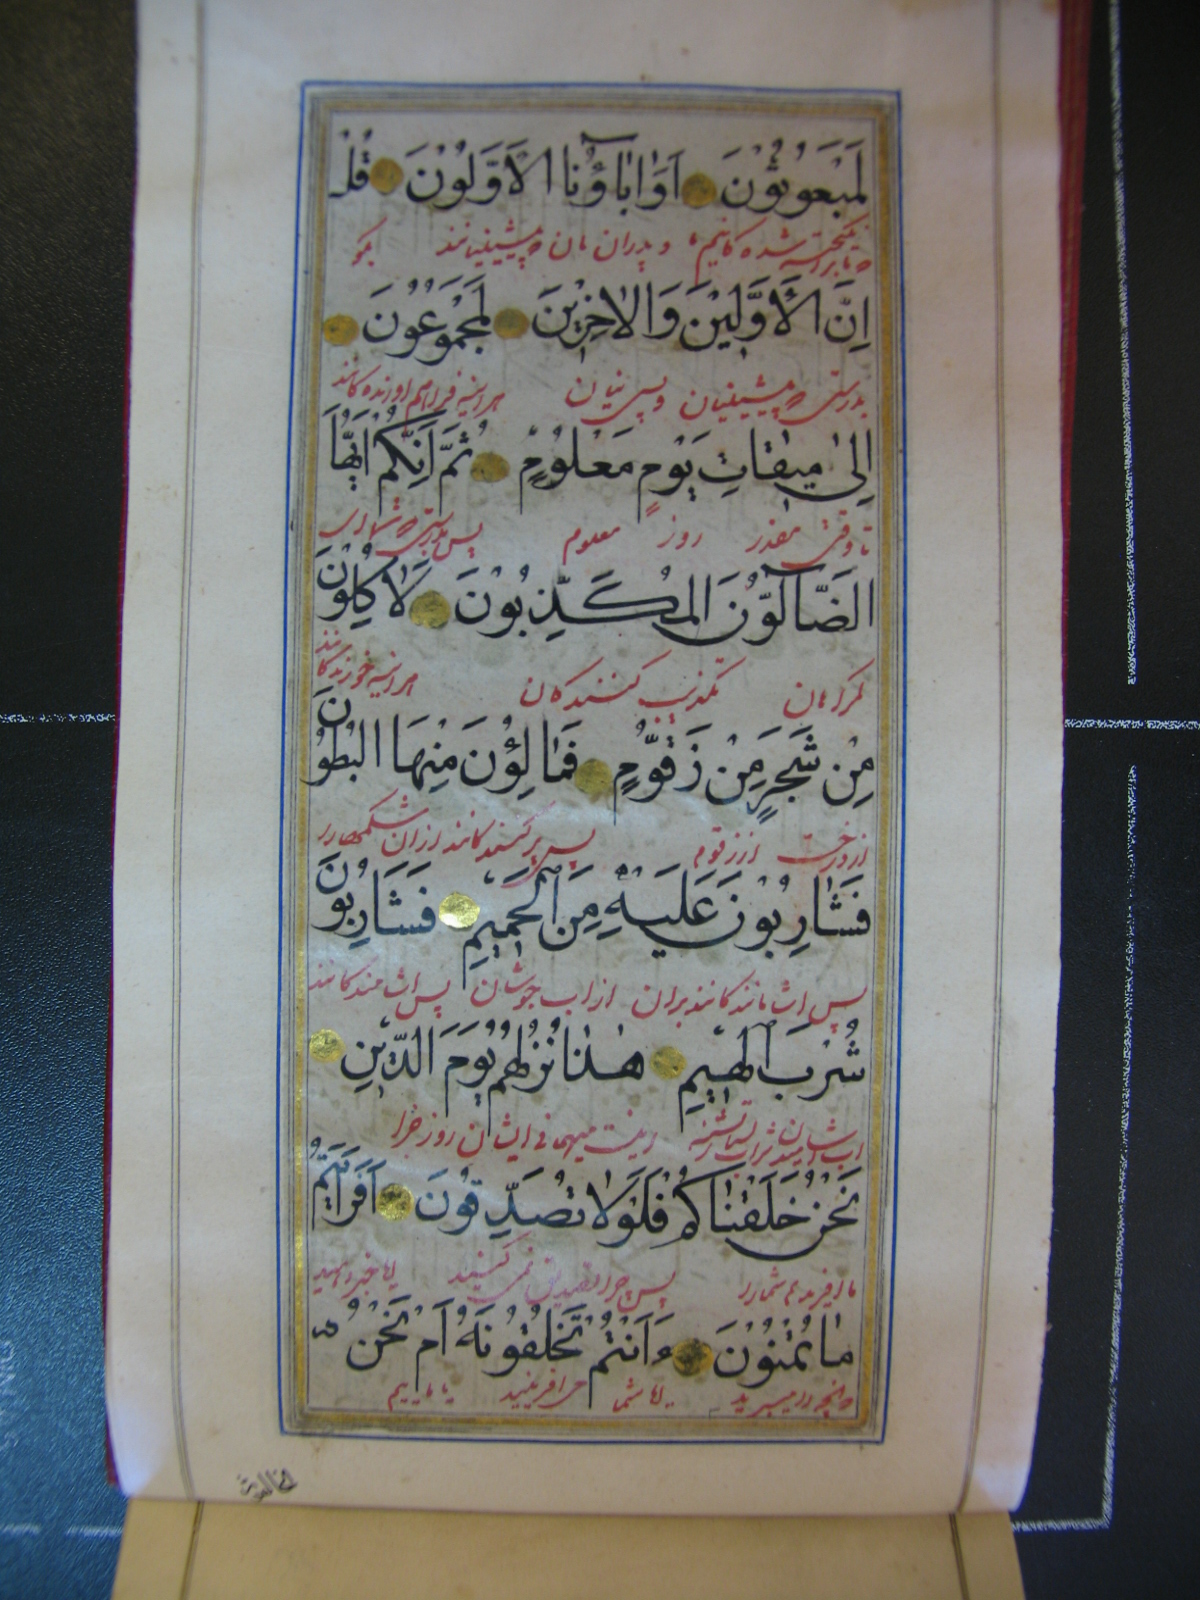 لَمَبْعُوثُونَ اَوَاٰبَاۤؤُنَا الْاَوَّلُونَ قُلْ
و پدران مان پیشینیانند بگو
اِنَّ الْاَوَّلِينَ وَالْاٰخِرِينَ لَمَجْمُوعُونَ
بدرستی پیشینیان و پسینیان هراینه فراهم اورنده کانند
اِلٰى مِيقَاتِ يَوْمٍ مَعْلُومٍ ثُمَّ اِنَّكُمْ اَيُّهَا
تا وقت مقدر روز معلوم پس بدرستی شما ای
الضَّاۤلُّونَ الْمُكَذِّبُونَ لَاٰكِلُونَ
کمراهان تکذیب کنندکان هراینه خورندکانند
مِنْ شَجَرٍ مِنْ زَقُّومٍ فَمَالِؤُنَ مِنْهَا الْبُطُونَ
از درخت از زقوم پس پر کنندکانند از ان شکمها را
فَشَارِبُونَ عَلَيْهِ مِنَ الْحَمِيمِ فَشَارِبُونَ
پس اشامندکانند بران از اب جوشان پس اشامندکانند
شُرْبَ الْهِيمِ هٰذَا نُزُلُهُمْ يَوْمَ الدِّينِ
اینست میهمانی ایشان روز جزا
نَحْنُ خَلَقْنَاكُمْ فَلَوْلَا تُصَدِّقُونَ اَفَرَاَيْتُمْ
ما افریدیم شما را پس چرا تصدیق نمی کنیند ایا خبر دهید
مَا تُمْنُونَ ءَاَنْتُمْ تَخْلُقُونَهُ اَمْ نَحْنُ
ایا شما می افرینید یا ماییم
الخالقون